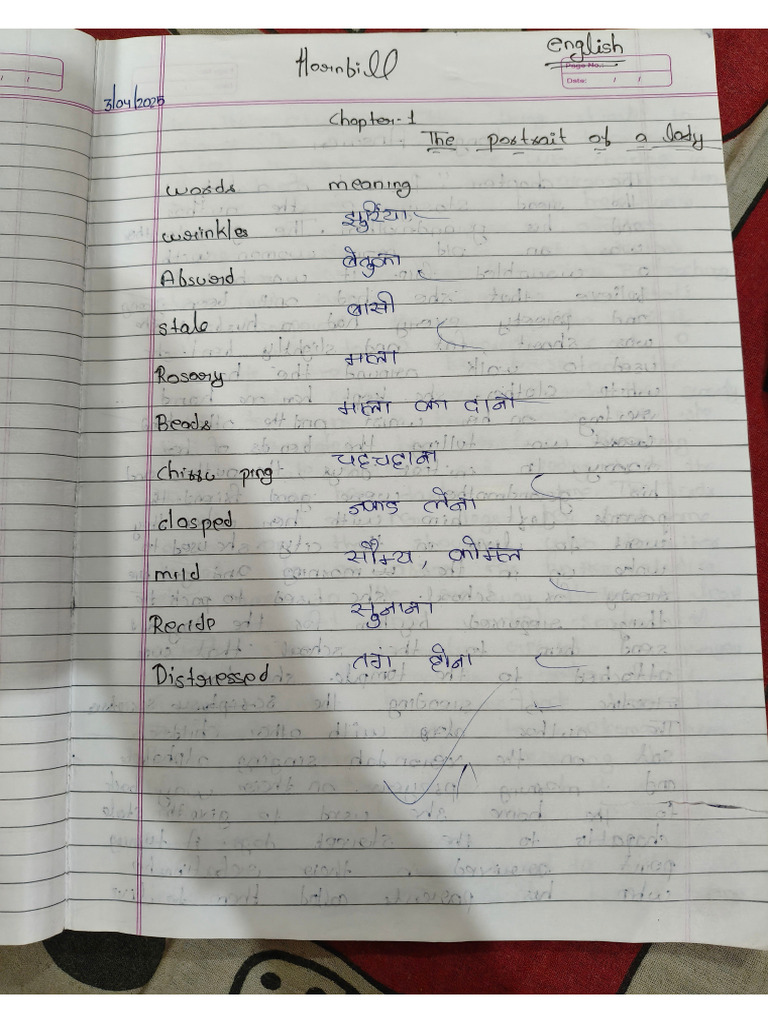 Hornbill
english
Page No.:
Date: / /
3/04/2025
Chapter-1
The portrait of a lady
words meaning
wrinkles झुर्रिया
Absurd बेतुका
stale बासी
Rosary माला
Beads माला का दाना
Chirru ping चहचहाना
clasped जकड लेना
mild सौम्य, कोमल
Recide सुनाना
Distressed तंग होना